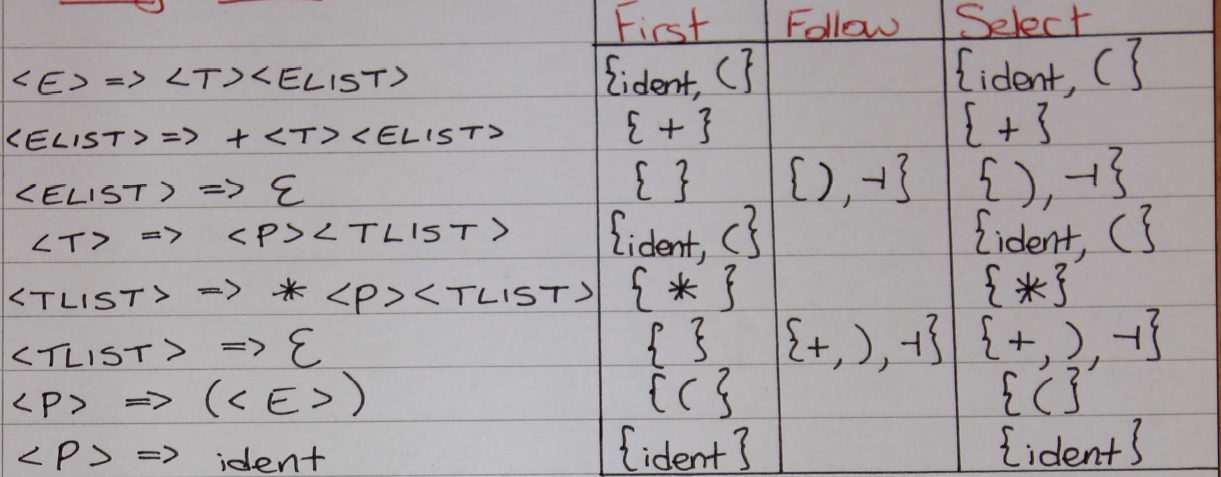 First Follow Select
<E> => <T><ELIST> {ident, (} {ident, (}
<ELIST> => + <T><ELIST> { + } { + }
<ELIST> => Ɛ { } {), ⊣} {), ⊣}
<T> => <P><TLIST> {ident, (} {ident, (}
<TLIST> => * <P><TLIST> { * } { * }
<TLIST> => Ɛ { } {+, ), ⊣} {+, ), ⊣}
<P> => (<E>) {(} {(}
<P> => ident {ident} {ident}